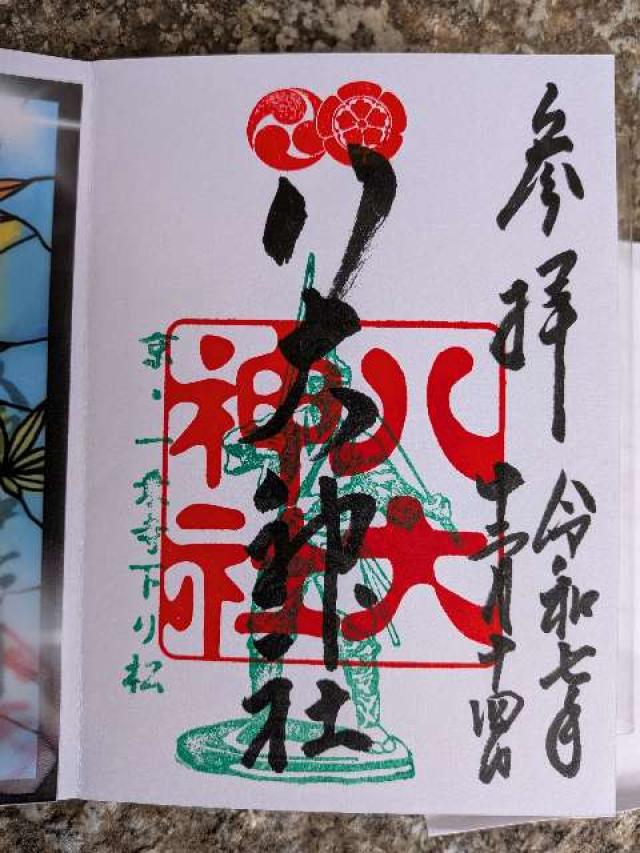 参拝
令和七年
十二月十四日
八大神社
八大
神社
京・一乗寺下り松